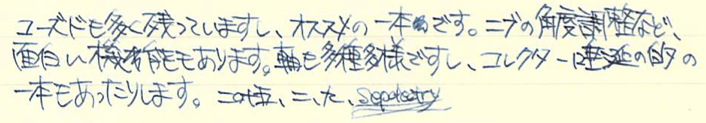 ユーズドも多く残っていますし、オススメの一本です。ニブの角度調整など、
面白い機能もあります。軸も多種多様ですし、コレクターに垂涎の的の
一本もあったりします。